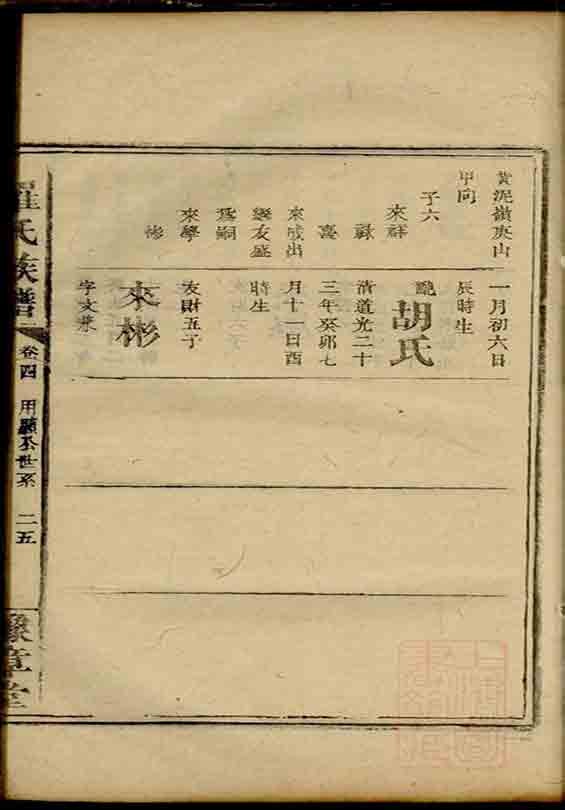 黃泥嶺庚山
甲向
子六
來祥
祿
喜
來成出
繼友盛
爲嗣
來學
彬
一月初六日
辰時生
配胡氏
清道光二十
三年癸卯七
月十一日酉
時生
友財五子
來彬
字文彬
羅氏族譜
卷四
用顯公世系
二五
豫章堂